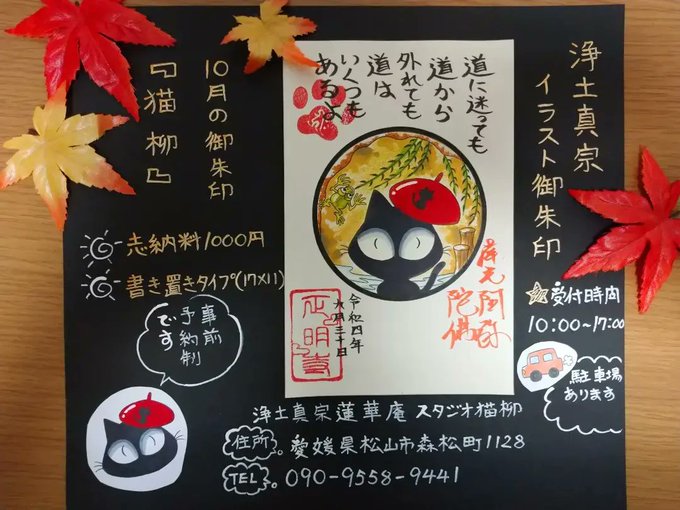 浄土真宗
イラスト御朱印
受付時間
10:00〜17:00
駐車場
あります
道に迷っても
道から
外れても
道は
いくつも
あるよ
南无阿弥
陀佛
令和四年
九月三十日
正明寺
10月の御朱印
『猫柳』
志納料1000円
書き置きタイプ(17×11)
事前
予約制
です
浄土真宗蓮華庵 スタジオ猫柳
住所。愛媛県松山市森松町1128
TEL。090-9558-9441